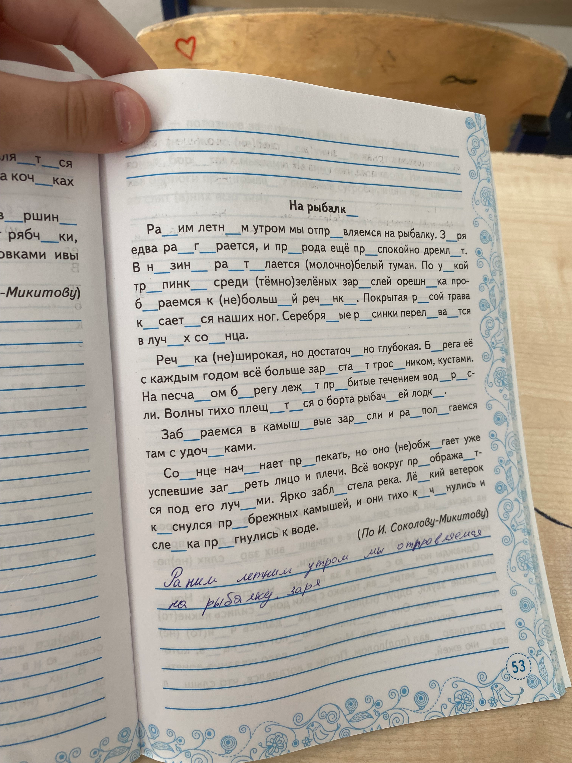 ля__т__ся
а коч__ках
в__ршин__
рябч__ки,
овками ивы
-Микитову)
На рыбалк__
Ра__им летн__м утром мы отпр__вляемся на рыбалку. З__ря
едва ра__г__рается, и пр__рода ещё пр__спокойно дремл__т.
В н__зин__ ра__т__лается (молочно)белый туман. По у__кой
тр__пинк__ среди (тёмно)зелёных зар__слей орешн__ка про-
б__раемся к (не)больш__й реч__нк__. Покрытая р__сой трава
к__сает__ся наших ног. Серебря__ые р__синки перел__ва__тся
в луч__х со__нца.
Реч__ка (не)широкая, но достаточ__но глубокая. Б__рега её
с каждым годом всё больше зар__ста__т трос__ником, кустами.
На песча__ом б__регу леж__т пр__битые течением вод__р__с-
ли. Волны тихо плещ__т__ся о борта рыбач__ей лодк__.
Заб__раемся в камыш__вые зар__сли и ра__пол__гаемся
там с удоч__ками.
Со__нце нач__нает пр__пекать, но оно (не)обж__гает уже
успевшие заг__реть лицо и плечи. Всё вокруг пр__ображa__т-
ся под его луч__ми. Ярко забл__стела река. Лё__кий ветерок
к__снулся пр__брежных камышей, и они тихо к__ч__нулись и
сле__ка пр__гнулись к воде.
(По И. Соколову-Микитову)
Раним летним утром мы отправляемся
на рыбалку. заря
53